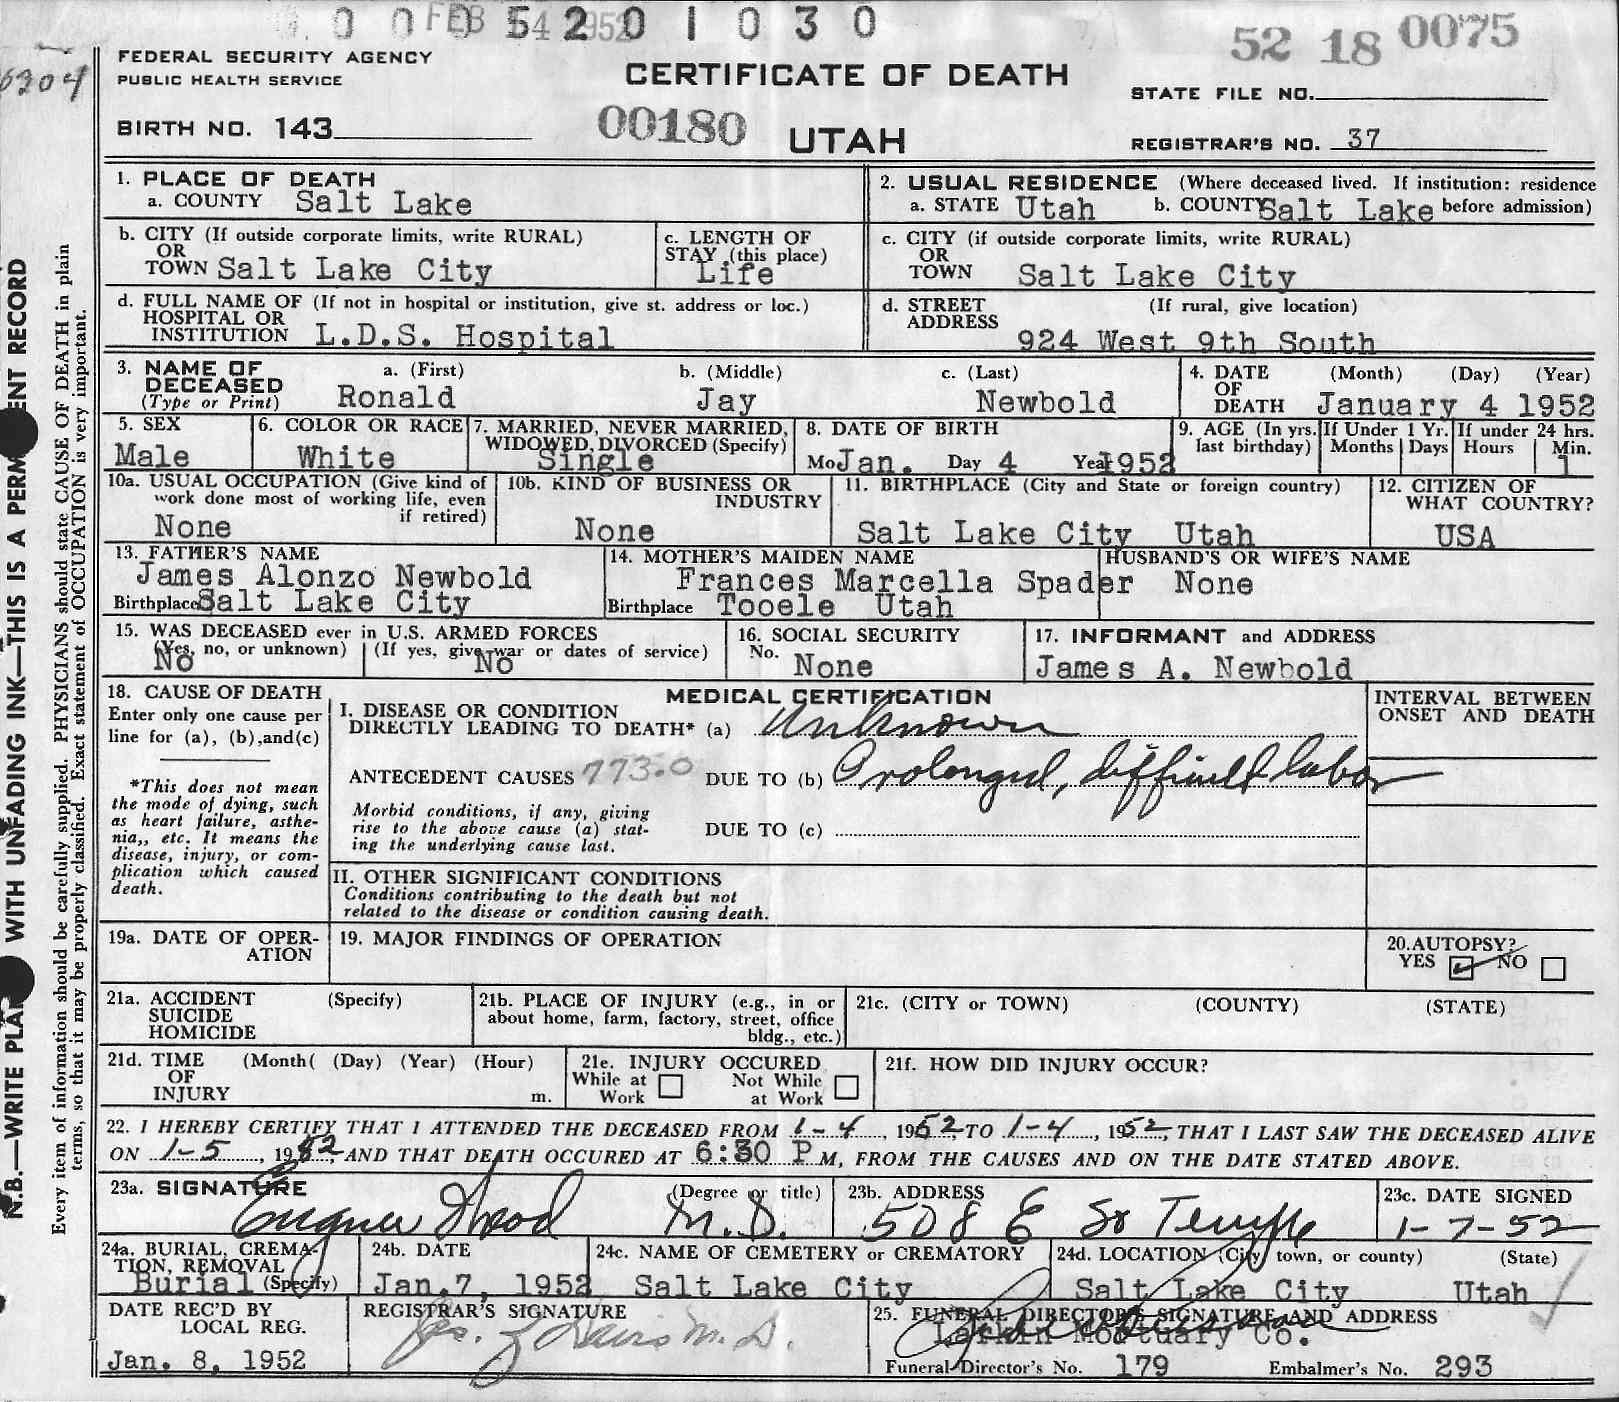 FEB 4 1952
0 0 5 2 0 1 0 3 0
52 18 0075
6304
FEDERAL SECURITY AGENCY
PUBLIC HEALTH SERVICE
CERTIFICATE OF DEATH
STATE FILE NO.
BIRTH NO. 143
00180
UTAH
REGISTRAR'S NO. 37
1. PLACE OF DEATH
a. COUNTY Salt Lake
2. USUAL RESIDENCE (Where deceased lived. If institution: residence before admission)
a. STATE Utah b. COUNTY Salt Lake
b. CITY (If outside corporate limits, write RURAL)
OR
TOWN Salt Lake City
c. LENGTH OF
STAY (this place)
Life
c. CITY (if outside corporate limits, write RURAL)
OR
TOWN Salt Lake City
d. FULL NAME OF (If not in hospital or institution, give st. address or loc.)
HOSPITAL OR
INSTITUTION L.D.S. Hospital
d. STREET (If rural, give location)
ADDRESS
924 West 9th South
3. NAME OF a. (First) b. (Middle) c. (Last)
DECEASED
(Type or Print) Ronald Jay Newbold
4. DATE (Month) (Day) (Year)
OF
DEATH January 4 1952
5. SEX
Male
6. COLOR OR RACE
White
7. MARRIED, NEVER MARRIED,
WIDOWED, DIVORCED (Specify)
Single
8. DATE OF BIRTH
Mo Jan. Day 4 Year 1952
9. AGE (In yrs. last birthday)
If Under 1 Yr.
Months Days
If under 24 hrs.
Hours Min.
1
10a. USUAL OCCUPATION (Give kind of
work done most of working life, even
if retired)
None
10b. KIND OF BUSINESS OR
INDUSTRY
None
11. BIRTHPLACE (City and State or foreign country)
Salt Lake City Utah
12. CITIZEN OF
WHAT COUNTRY?
USA
13. FATHER'S NAME
James Alonzo Newbold
Birthplace Salt Lake City
14. MOTHER'S MAIDEN NAME
Frances Marcella Spader
Birthplace Tooele Utah
HUSBAND'S OR WIFE'S NAME
None
15. WAS DECEASED ever in U.S. ARMED FORCES
(Yes, no, or unknown) (If yes, give war or dates of service)
No No
16. SOCIAL SECURITY
No. None
17. INFORMANT and ADDRESS
James A. Newbold
18. CAUSE OF DEATH
Enter only one cause per
line for (a), (b), and (c)
*This does not mean
the mode of dying, such
as heart failure, asthe-
nia,, etc. It means the
disease, injury, or com-
plication which caused
death.
MEDICAL CERTIFICATION
I. DISEASE OR CONDITION
DIRECTLY LEADING TO DEATH* (a) Unknown
ANTECEDENT CAUSES 773.0 DUE TO (b) Prolonged, difficult labor
Morbid conditions, if any, giving
rise to the above cause (a) stat-
ing the underlying cause last.
DUE TO (c)
INTERVAL BETWEEN
ONSET AND DEATH
II. OTHER SIGNIFICANT CONDITIONS
Conditions contributing to the death but not
related to the disease or condition causing death.
19a. DATE OF OPER-
ATION
19. MAJOR FINDINGS OF OPERATION
20. AUTOPSY?
YES NO
21a. ACCIDENT (Specify)
SUICIDE
HOMICIDE
21b. PLACE OF INJURY (e.g., in or
about home, farm, factory, street, office
bldg., etc.)
21c. (CITY or TOWN) (COUNTY) (STATE)
21d. TIME (Month( (Day) (Year) (Hour)
OF
INJURY m.
21e. INJURY OCCURED
While at Work Not While at Work
21f. HOW DID INJURY OCCUR?
22. I HEREBY CERTIFY THAT I ATTENDED THE DECEASED FROM 1-4, 1952, TO 1-4, 1952, THAT I LAST SAW THE DECEASED ALIVE
ON 1-5, 1952, AND THAT DEATH OCCURED AT 6:30 P M, FROM THE CAUSES AND ON THE DATE STATED ABOVE.
23a. SIGNATURE (Degree or title)
Eugene Wood M.D.
23b. ADDRESS
508 E So Temple
23c. DATE SIGNED
1-7-52
24a. BURIAL, CREMA-
TION, REMOVAL
Burial (Specify)
24b. DATE
Jan. 7, 1952
24c. NAME OF CEMETERY or CREMATORY
Salt Lake City
24d. LOCATION (City, town, or county) (State)
Salt Lake City Utah
DATE REC'D BY
LOCAL REG.
Jan. 8, 1952
REGISTRAR'S SIGNATURE
Jas. J Davis M.D.
25. FUNERAL DIRECTOR'S SIGNATURE AND ADDRESS
Larkin Mortuary Co.
Funeral Director's No. 179 Embalmer's No. 293
N.B.—WRITE PLA WITH UNFADING INK—THIS IS A PERM ENT RECORD
Every item of information should be carefully supplied. PHYSICIANS should state CAUSE OF DEATH in plain
terms, so that it may be properly classified. Exact statement of OCCUPATION is very important.